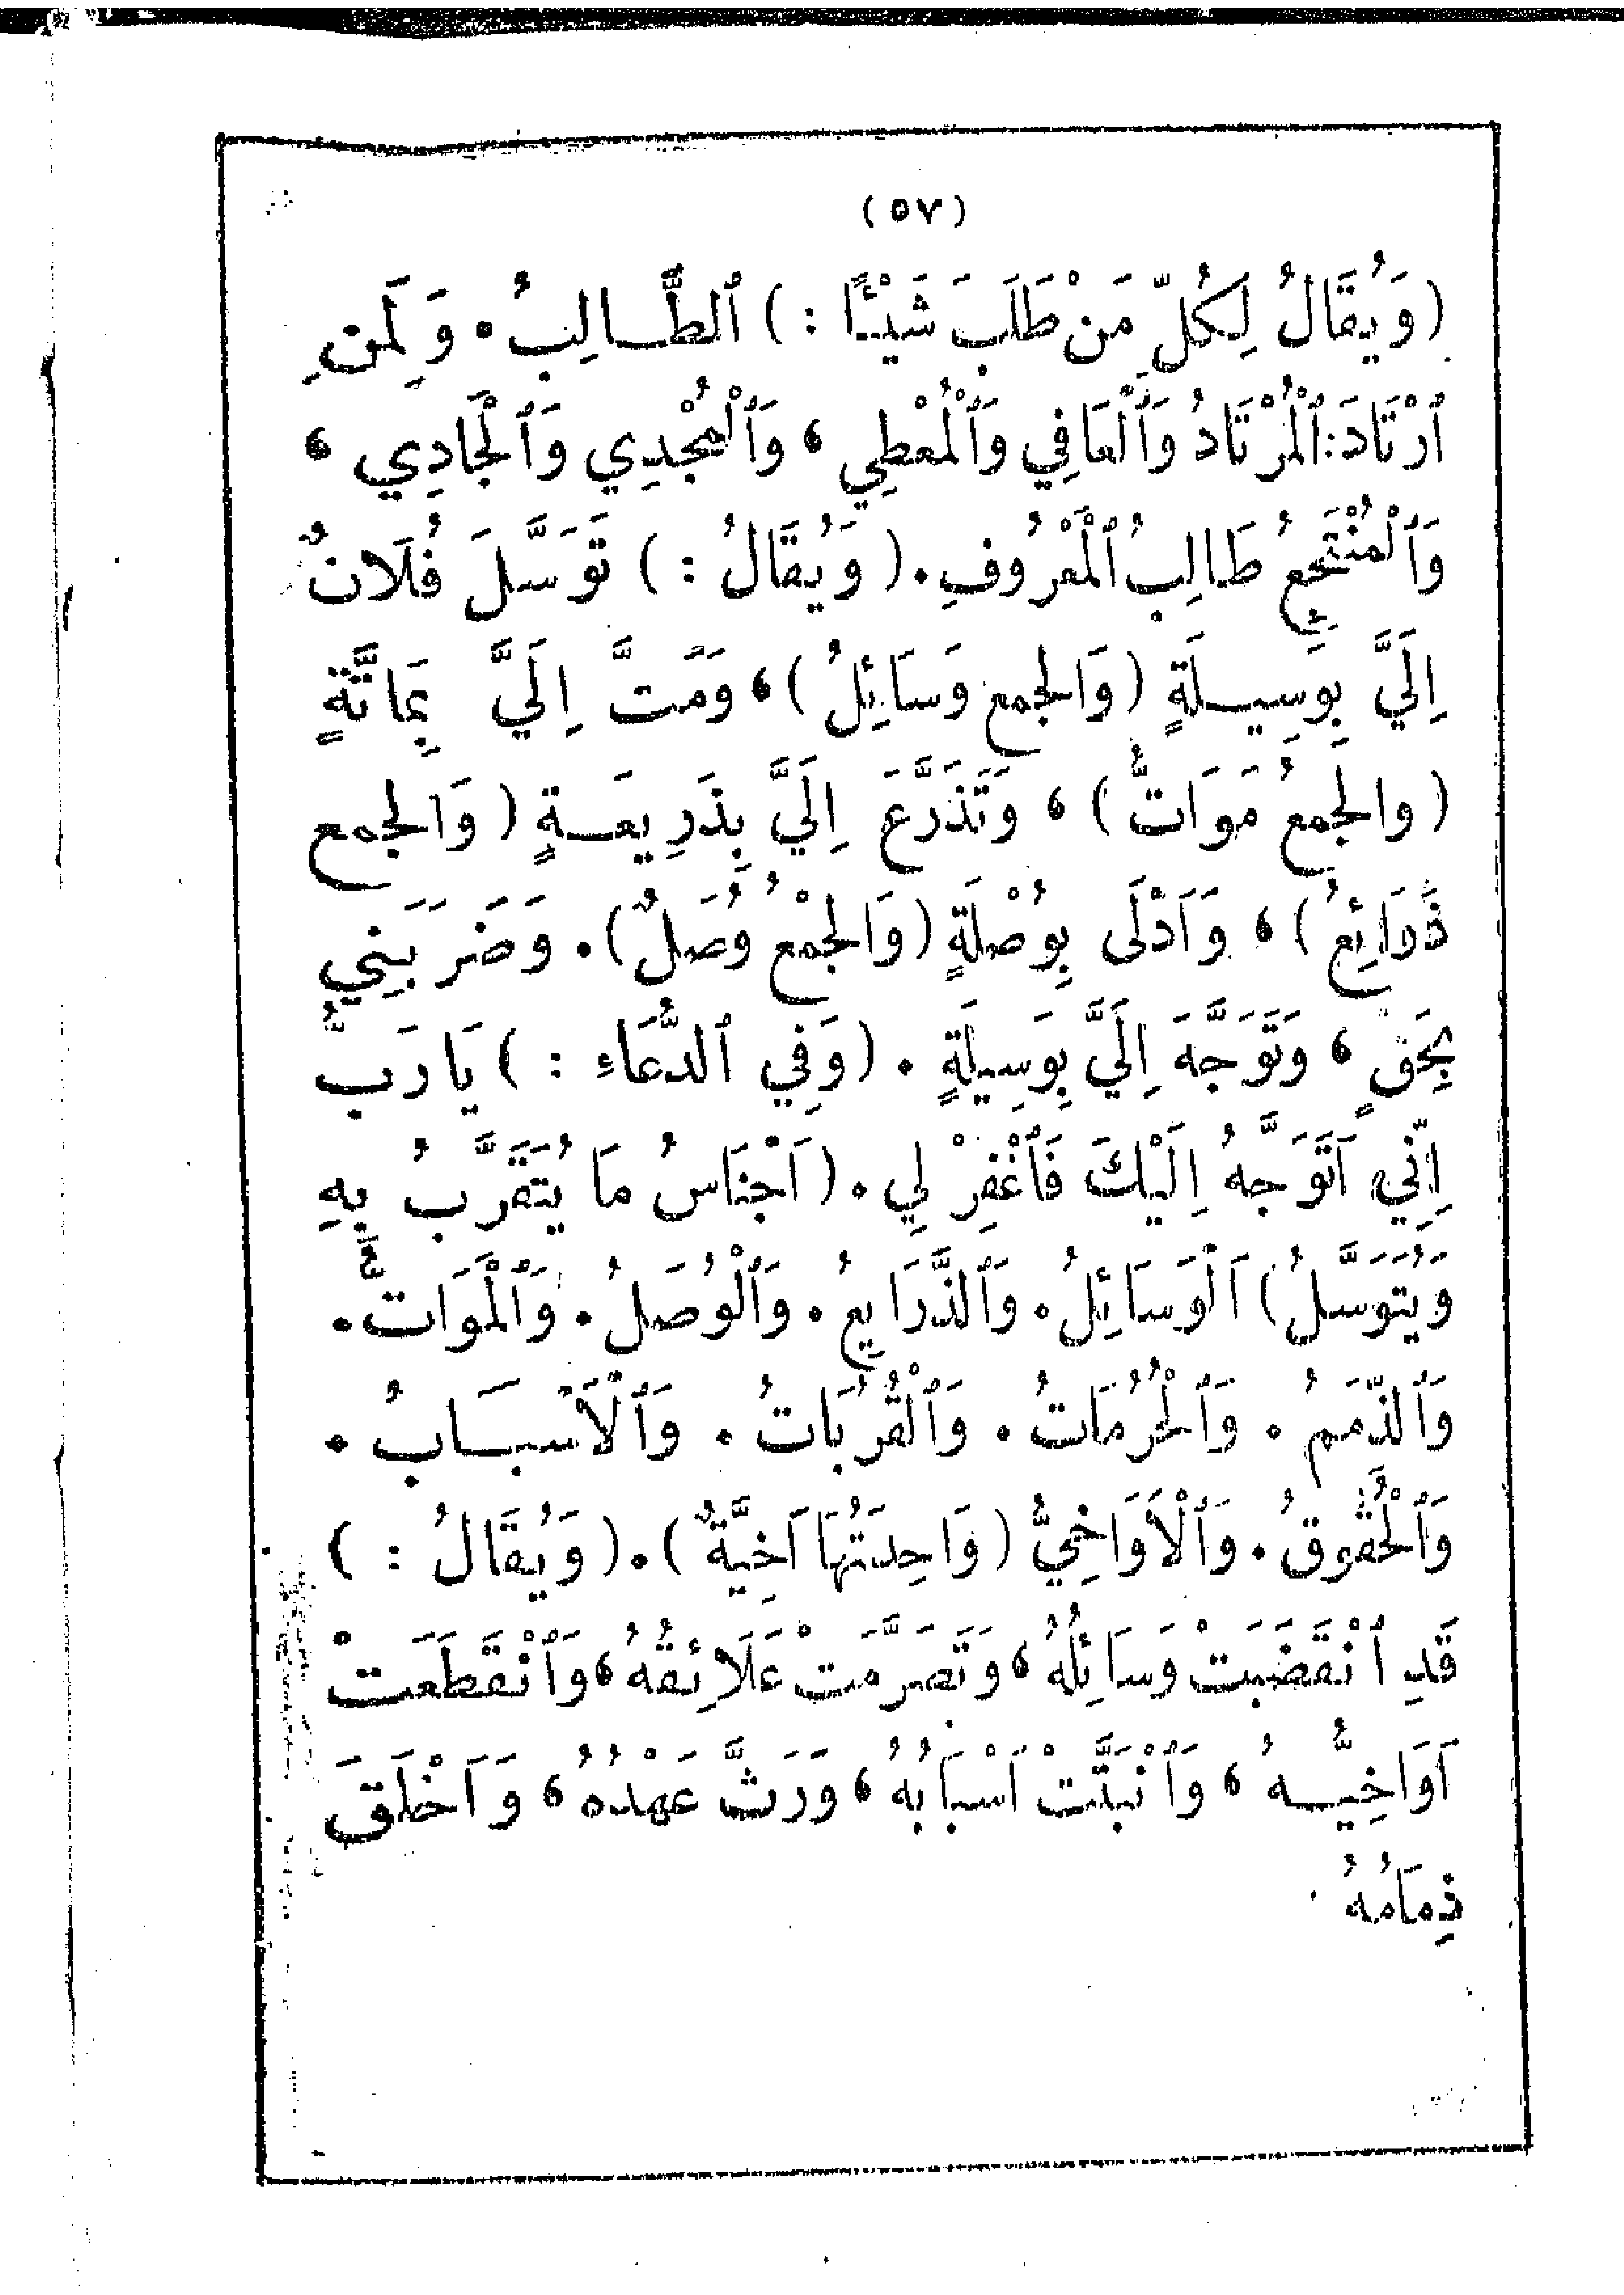 (٥٧)
(وَيُقَالُ لِكُلِّ مَنْ طَلَبَ شَيْئًا :) ٱلطَّالِبُ. وَلِمَنِ
ٱرْتَادَ: ٱلْمُرْتَادُ وَٱلْعَافِي وَٱلْمُعْطِي، وَٱلْمُجْدِي وَٱلْجَادِي،
وَٱلْمُنْتَجِعُ طَالِبُ ٱلْمَعْرُوفِ. (وَيُقَالُ :) تَوَسَّلَ فُلَانٌ
إِلَيَّ بِوَسِيلَةٍ (وَالجمع وَسَائِلُ)، وَمَتَّ إِلَيَّ بِمَاتَّةٍ
(والجَمعُ مَوَاتُّ)، وَتَذَرَّعَ إِلَيَّ بِذَرِيعَةٍ (وَالجمع
ذَرَائِعُ)، وَأَدْلَى بِوُصْلَةٍ (وَالجَمْعُ وُصَلٌ). وَضَرَبَنِي
بِحَقٍّ، وَتَوَجَّهَ إِلَيَّ بِوَسِيلَةٍ. (وَفِي ٱلدُّعَاءِ :) يَا رَبُّ
إِنِّي أَتَوَجَّهُ إِلَيْكَ فَٱغْفِرْ لِي. (أَجْنَاسُ مَا يُتَقَرَّبُ بِهِ
وَيُتَوَسَّلُ) اَلْوَسَائِلُ. وَٱلذَّرَايِعُ. وَٱلْوُصَلُ. وَٱلْمَوَاتُّ.
وَٱلذِّمَمُ. وَٱلْحُرُمَاتُ. وَٱلْقُرُبَاتُ. وَٱلْأَسْبَابُ.
وَٱلْحُقُوقُ. وَٱلْأَوَاخِيُّ (وَاحِدَتُهَا آخِيَّةٌ). (وَيُقَالُ :)
قَدِ ٱنْقَضَبَتْ وَسَائِلُهُ، وَتَصَرَّمَتْ عَلَائِقُهُ، وَٱنْقَطَعَتْ
أَوَاخِيُّهُ، وَٱنْبَتَّتْ أَسْبَابُهُ، وَرَثَّ عَهْدُهُ، وَأَخْلَقَ
ذِمَامُهُ